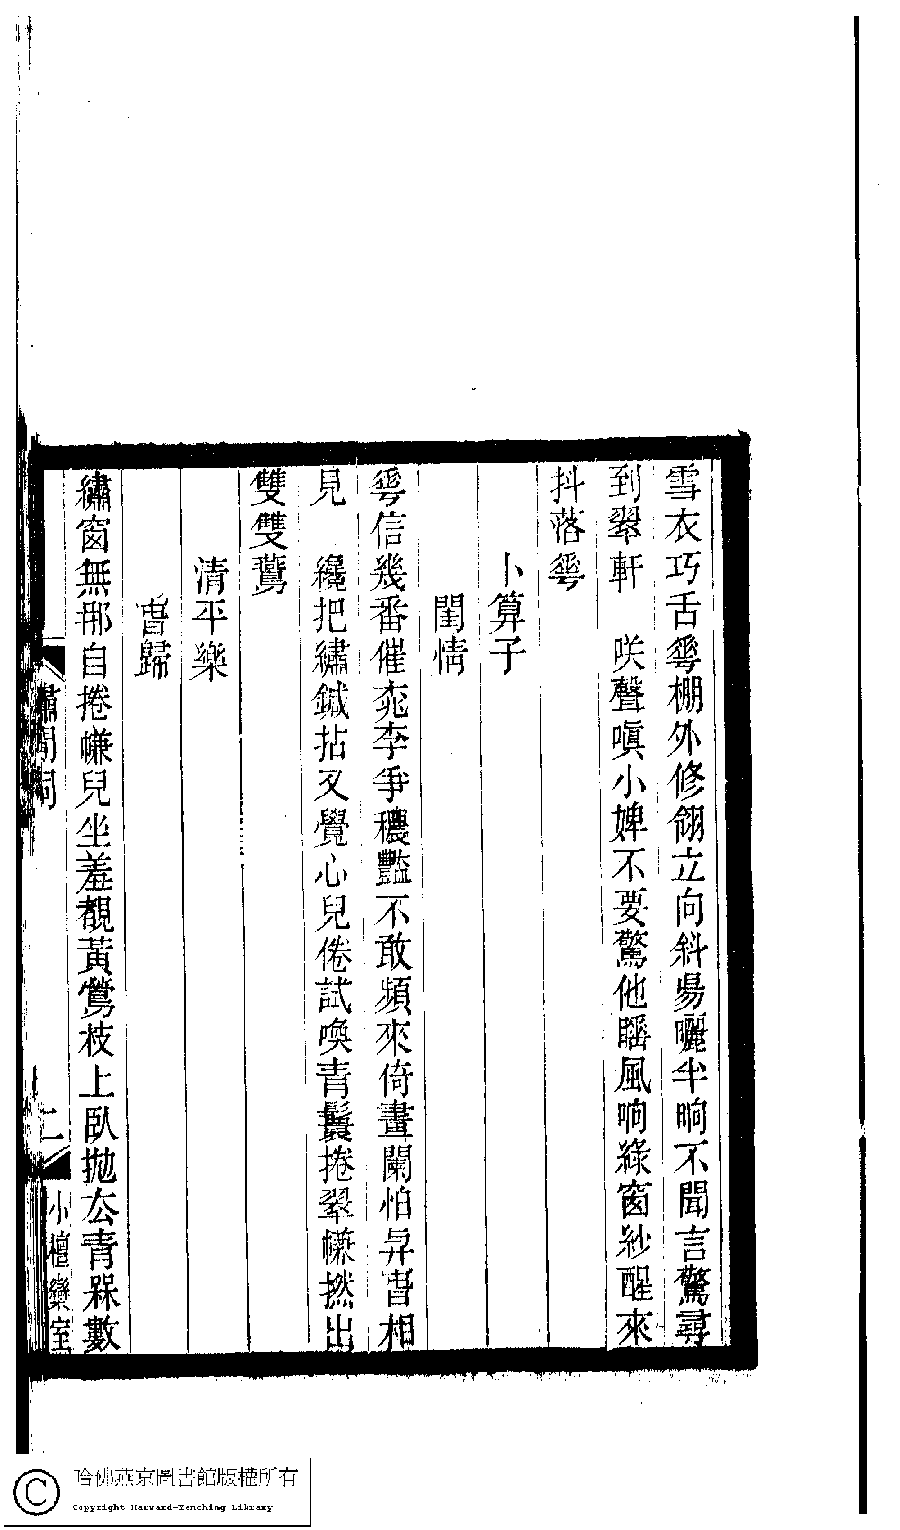 雪衣巧舌𠌶棚外修翎立向斜昜曬半晌不聞言驚尋
到翠軒　咲聲嗔小婢不要驚他睡風晌綠窗紗醒來
抖落𠌶
卜算子
閨情
𠌶信幾番催桃李爭穠豔不敢頻來倚畫闌怕舁旾相
見　纔把繡鍼拈又覺心兒倦試喚青鬟捲翠㡘撚出
雙雙鷰
清平樂
旾歸
繡窗無那自捲㡘兒坐羞覩黃鶯枝上臥拋厺青槑數
二
小檀欒室
哈佛燕京圖書館版權所有
Copyright Harvard-Yenching Library